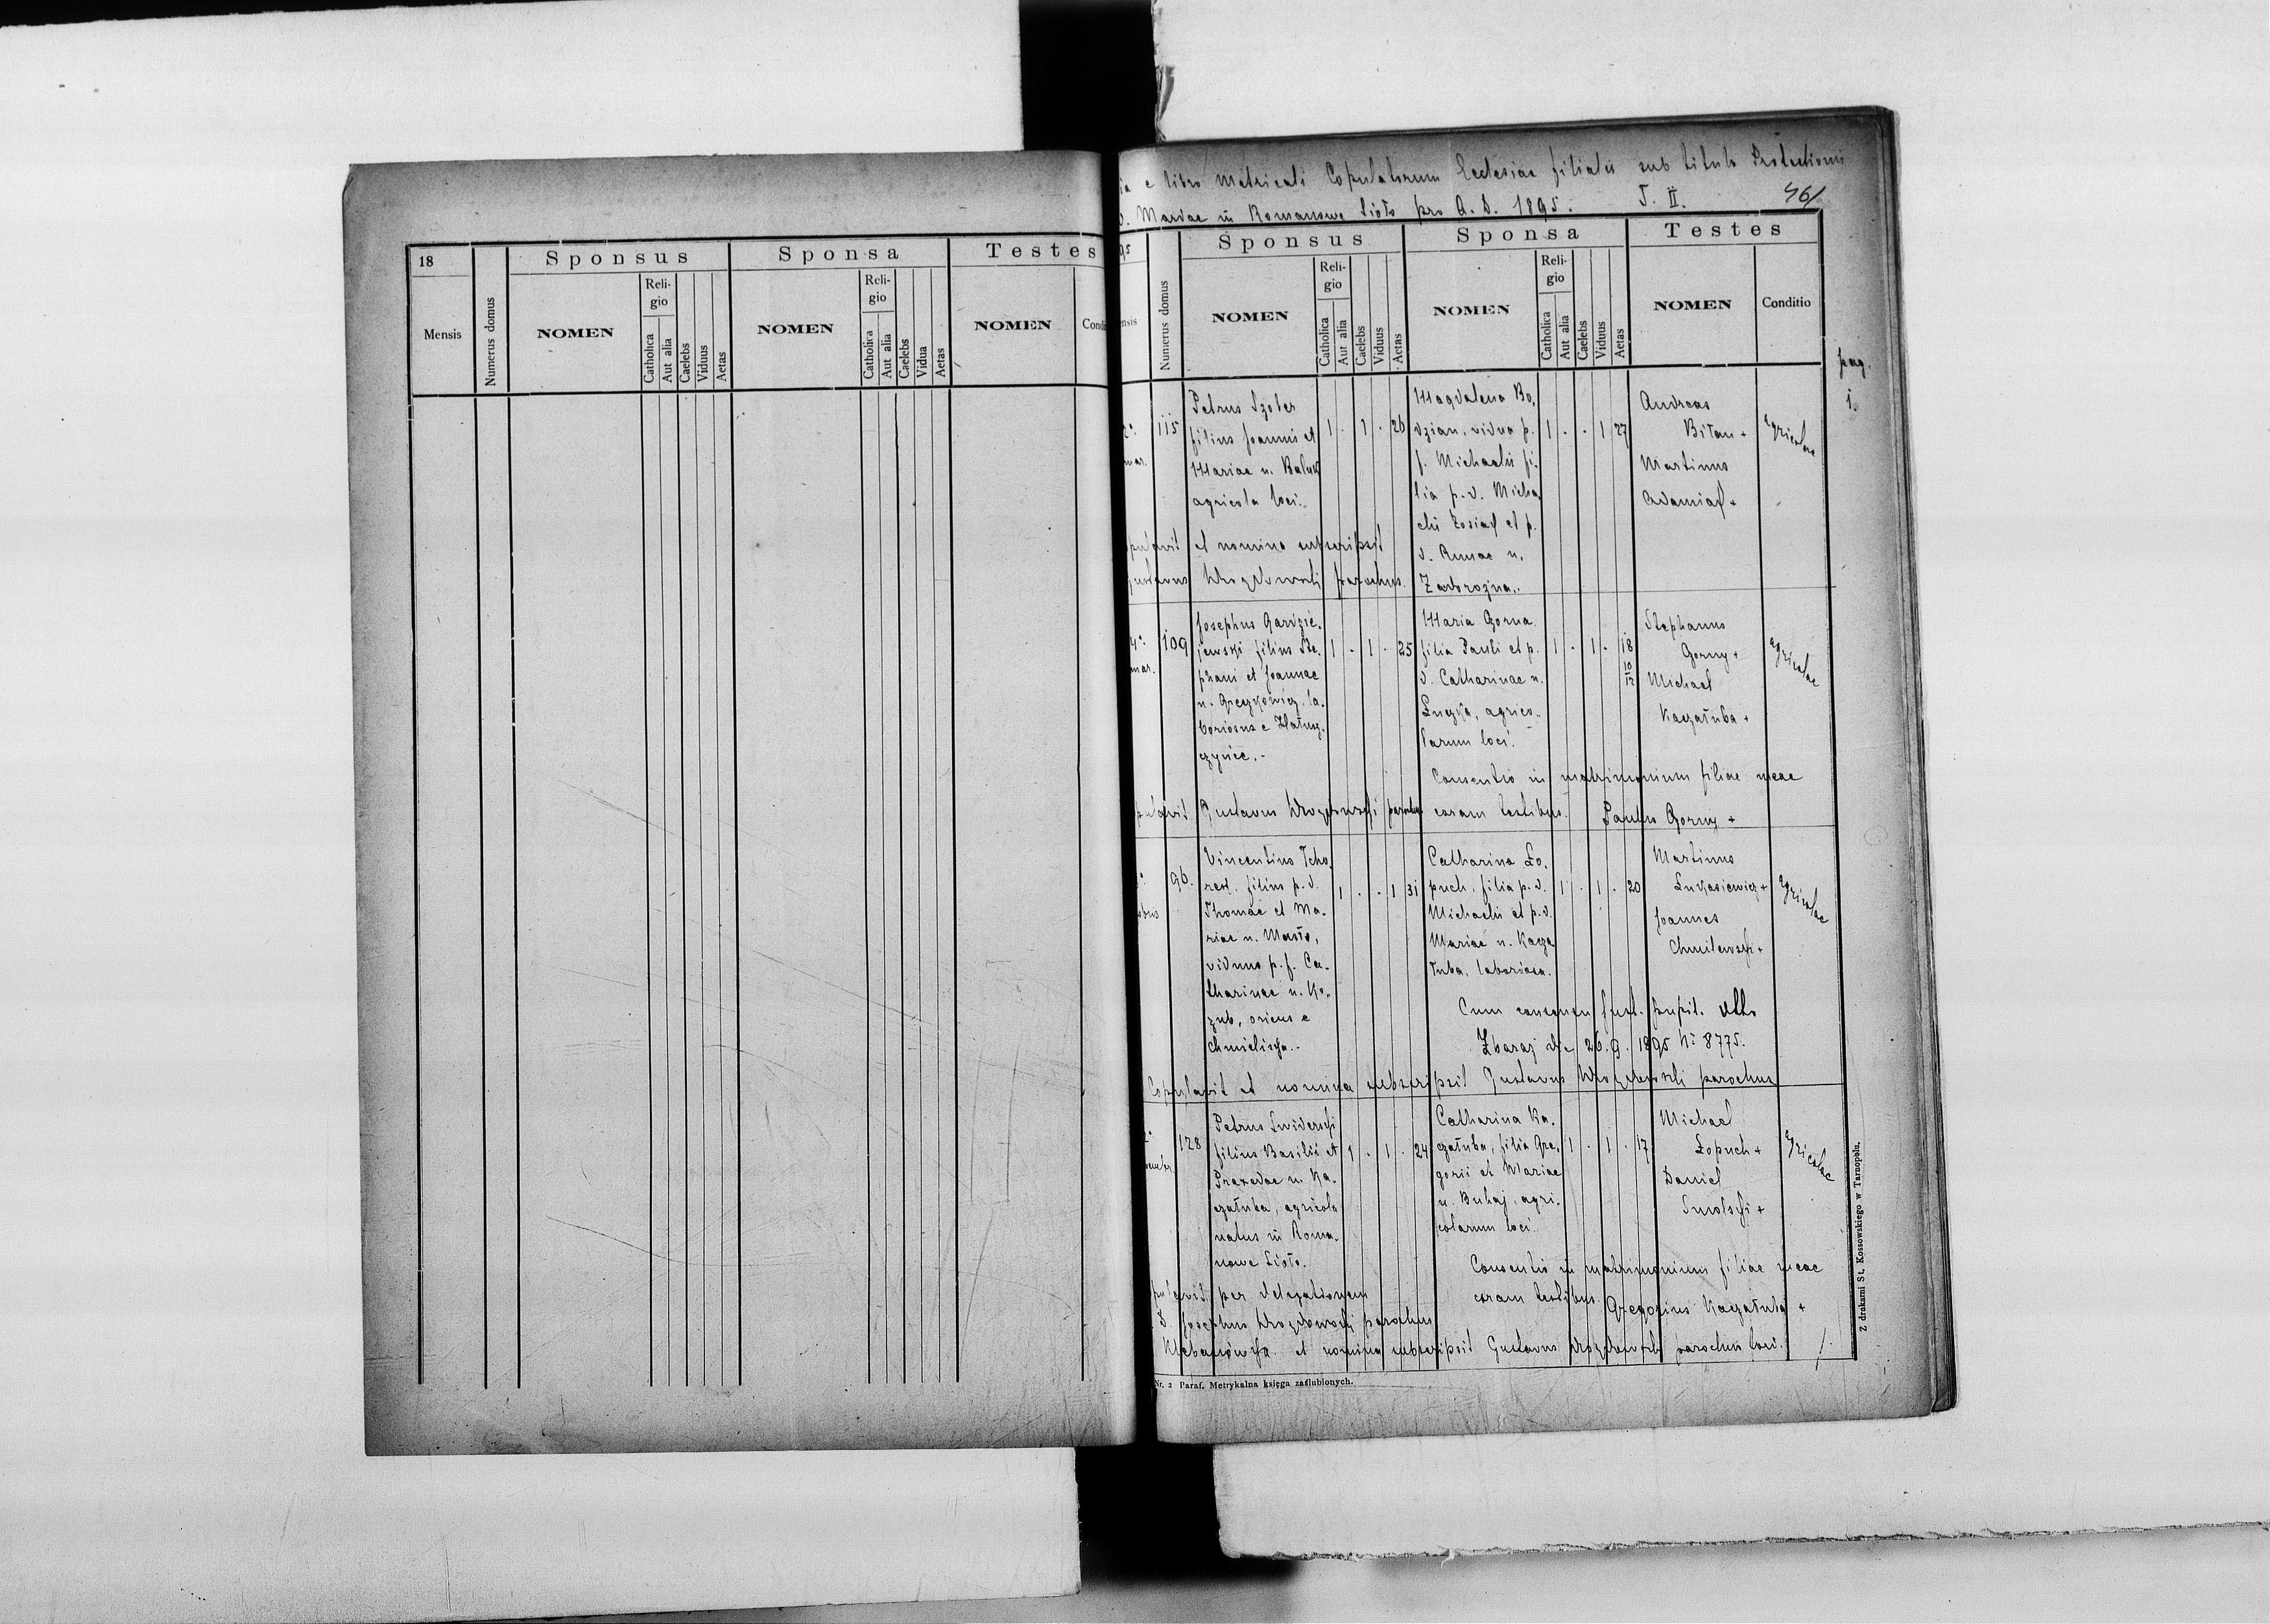 18
Mensis
Numerus domus
Sponsus
NOMEN
Religio
Catholica
Aut alia
Caelebs
Viduus
Aetas
Sponsa
NOMEN
Religio
Catholica
Aut alia
Caelebs
Vidua
Aetas
Testes
NOMEN
e libro Metricali Copulatorum Ecclesiae filialis sub titulo Protectionis
Mariae in Romanowe Sioło pro A. D. 1895. T. II. 46/
Numerus domus
Sponsus
NOMEN
Reli-
gio
Catholica
Aut alia
Caelebs
Viduus
Aetas
Sponsa
NOMEN
Reli-
gio
Catholica
Aut alia
Caelebs
Viduus
Aetas
Testes
NOMEN
Conditio
pag.
1.
115
Petrus Szober
filius Joannis et
Mariae n. Baluk
agricola loci.
1 . 1 . 26
Magdalena Bo,
dzian, vidua p.
f. Michaelis fi,
lia p. d. Micha,
elis Kosiak et p.
d. Annae n.
Zadorozna.
1 . . 1 27
Andreas
Bitan +
Martinus
Adamiak +
agricolae
et nomina subscripsit
Drozdowski parochus.
109
Josephus Gardzie,
jewski filius Ste,
phani et Joannae
n. Greczkowicz, la,
boriosus e Hłuszczyniec.
1 . 1 . 25
Maria Gorna
filia Pauli et p.
d. Catharinae n.
Luczka, agrico,
larum loci.
1 . 1 . 18
10
12
Stephanus
Gorny +
Michael
Kaczałuba +
agricolae
Consentio in matrimonium filiae meae
coram testibus. Paulus Gorny +
Gustavus Drozdowski parochus
96.
Vincentius Tcho,
rek, filius p. d.
Thomae et Ma,
riae n. Masło,
viduus p. f. Ca,
tharinae n. Ko,
zub, oriens e
1 . . 1 31
Catharina Ło,
puch, filia p. d.
Michaelis et p. d.
Mariae n. Kacza
łuba, laboriosa.
1 . 1 . 20
Martinus
Łukasiewicz +
Joannes
Chmilewski +
agricolae
Cum consensu Just. pupil. dtto
Zbaraz de 26. 9. 1895 N: 8775.
Copulavit et nomina subscripsit Gustavus Drozdowski parochus
128
Petrus Swiderski
filius Basilii et
Praxedae n. Ka,
czałuba, agricola
natus in Roma,
nowe Sioło.
1 . 1 . 24
Catharina Ka,
czałuba, filia Gre,
gorii et Mariae
n. Buhaj, agri,
colarum loci
1 . 1 . 17
Michael
Łopuch +
Daniel
Smolski +
agricolae
Consentio in matrimonium filiae meae
coram testibus. Gregorius Kaczałuba +
per delegationem
Josephus Drozdowski parochus
et nomina subscripsit Gustavus Drozdowski parochus loci.
Nr. 2 Paraf. Metrykalna księga zaślubionych.
Z drukarni St. Kossowskiego w Tarnopolu.